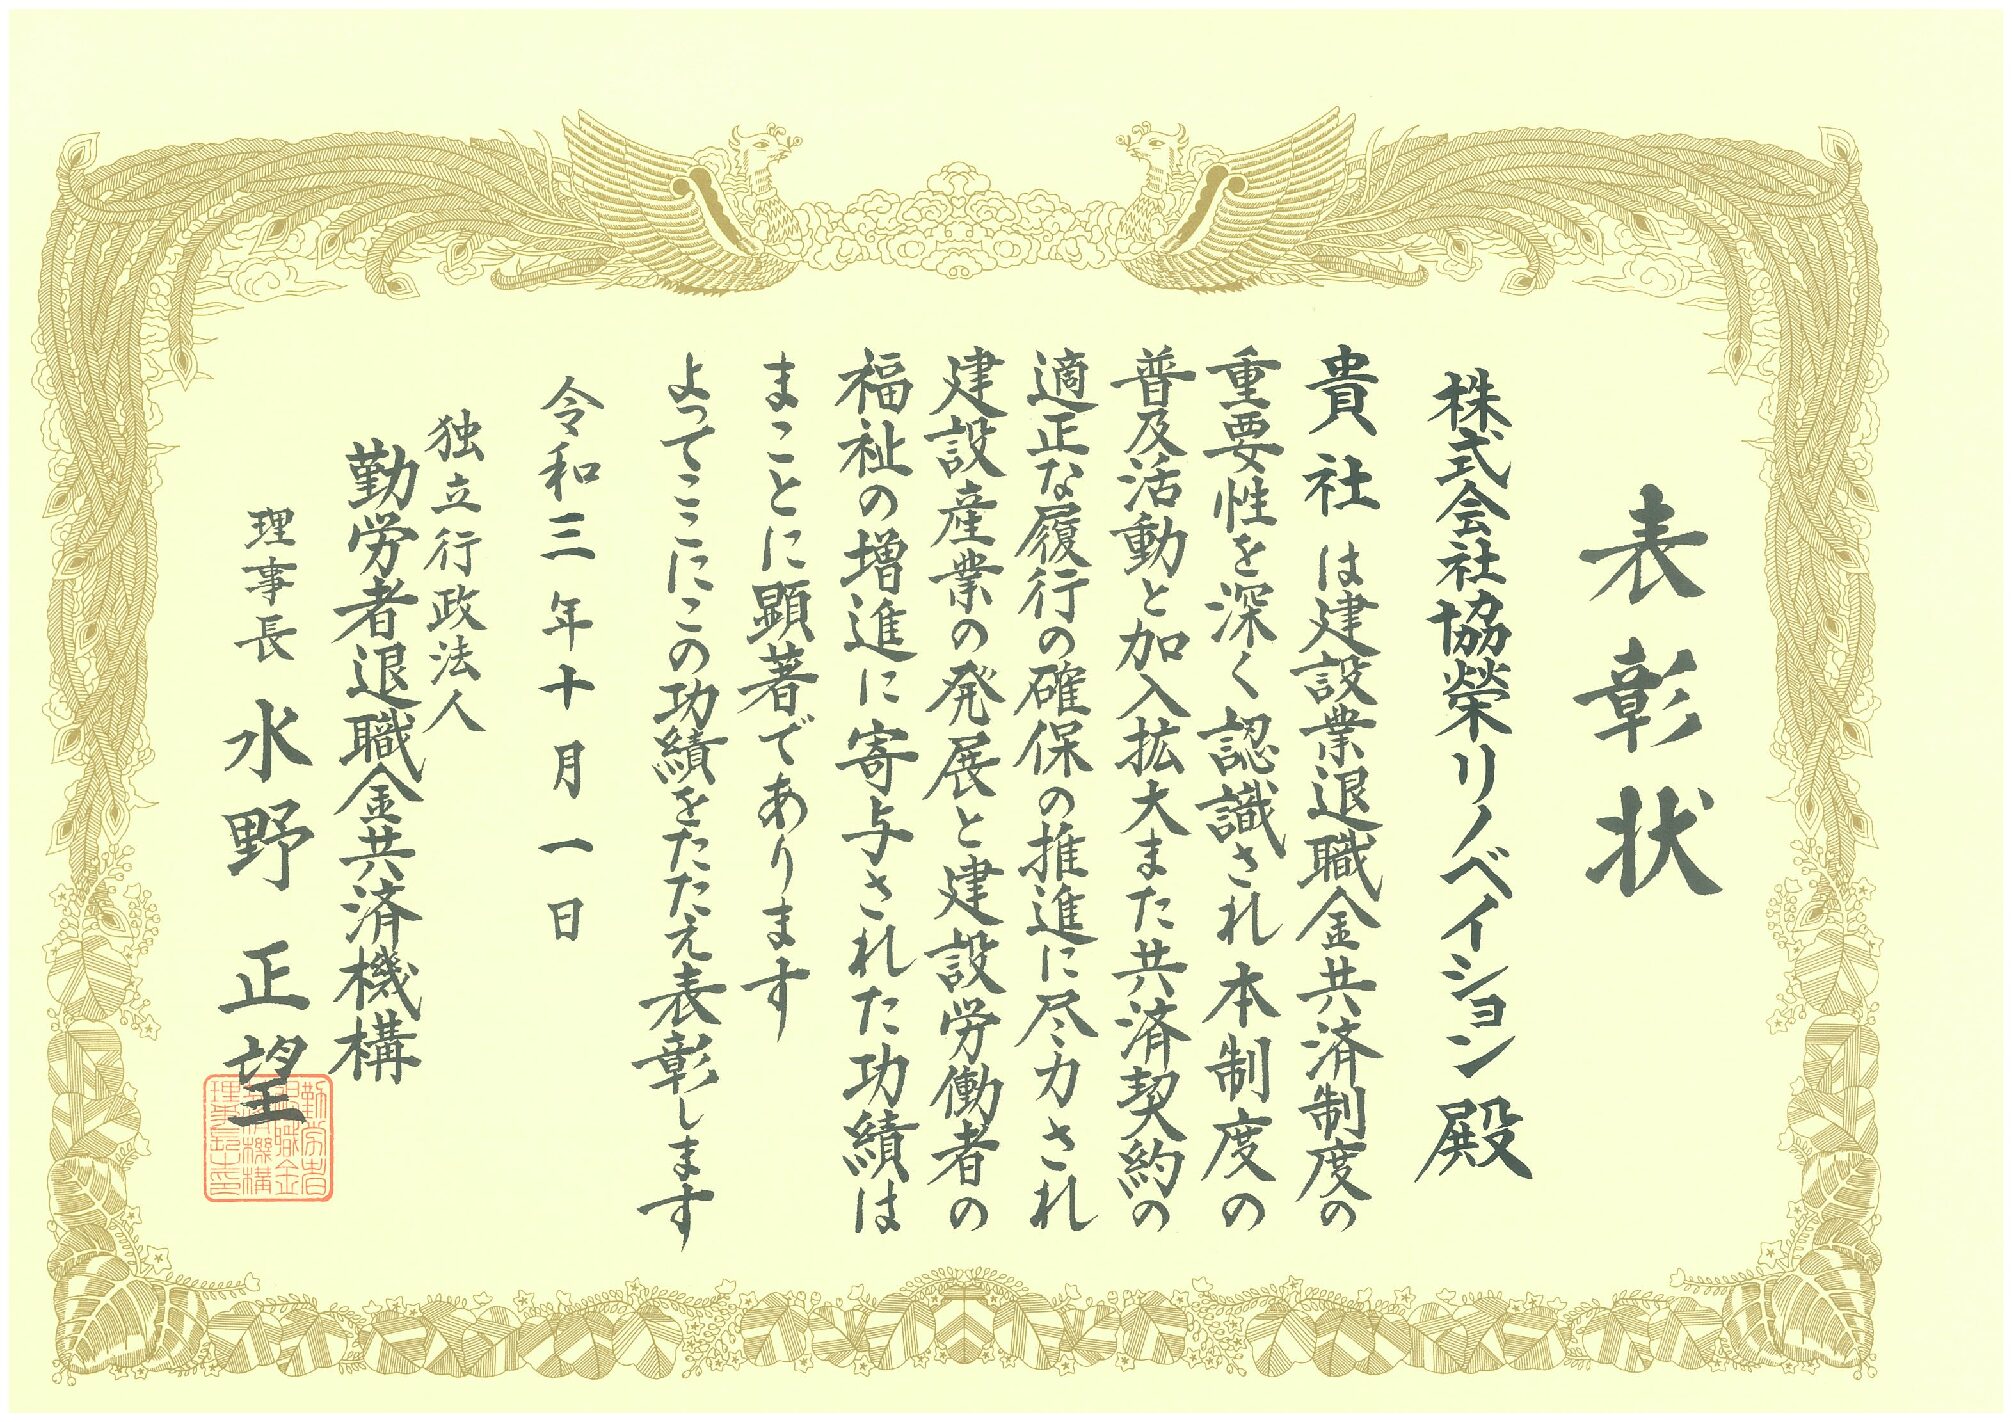 表彰状
株式会社協榮リノベイション殿
貴社は建設業退職金共済制度の
重要性を深く認識され本制度の
普及活動と加入拡大また共済契約の
適正な履行の確保の推進に尽力され
建設産業の発展と建設労働者の
福祉の増進に寄与された功績は
まことに顕著であります
よってここにこの功績をたたえ表彰します
令和三年十月一日
独立行政法人
勤労者退職金共済機構
理事長 水野正望
勤労者
退職金
共済機構
理事長印